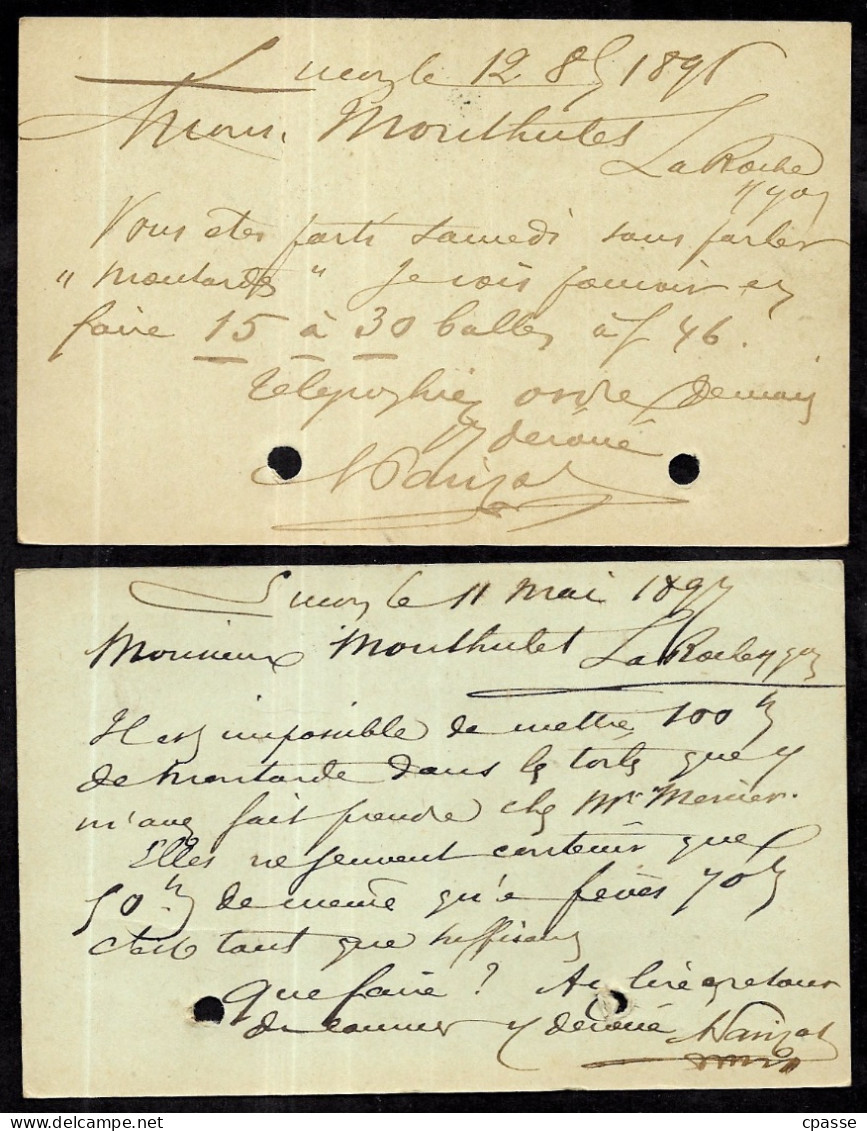 Luçon le 12 8bre 1896
Monthulet
La Roche
s/yon
Vous êtes parti samedi sans parler
" moutarde " Je crois pouvoir en
faire 15 à 30 balles à f 46.
ordre demain
dévoué
Luçon le 11 mai 1897
Monsieur Monthulet La Roche s/yon
Il est impossible de mettre 100 k
de moutarde dans les que v
m'avez fait prendre chez Mr Mercier.
Elles ne peuvent contenir que
50 k de même qu'en fèves 70 k
c'est tant que suffisant
Que faire ? Au lire par retour
du courrier v dévoué
delcampe.net
cpasse